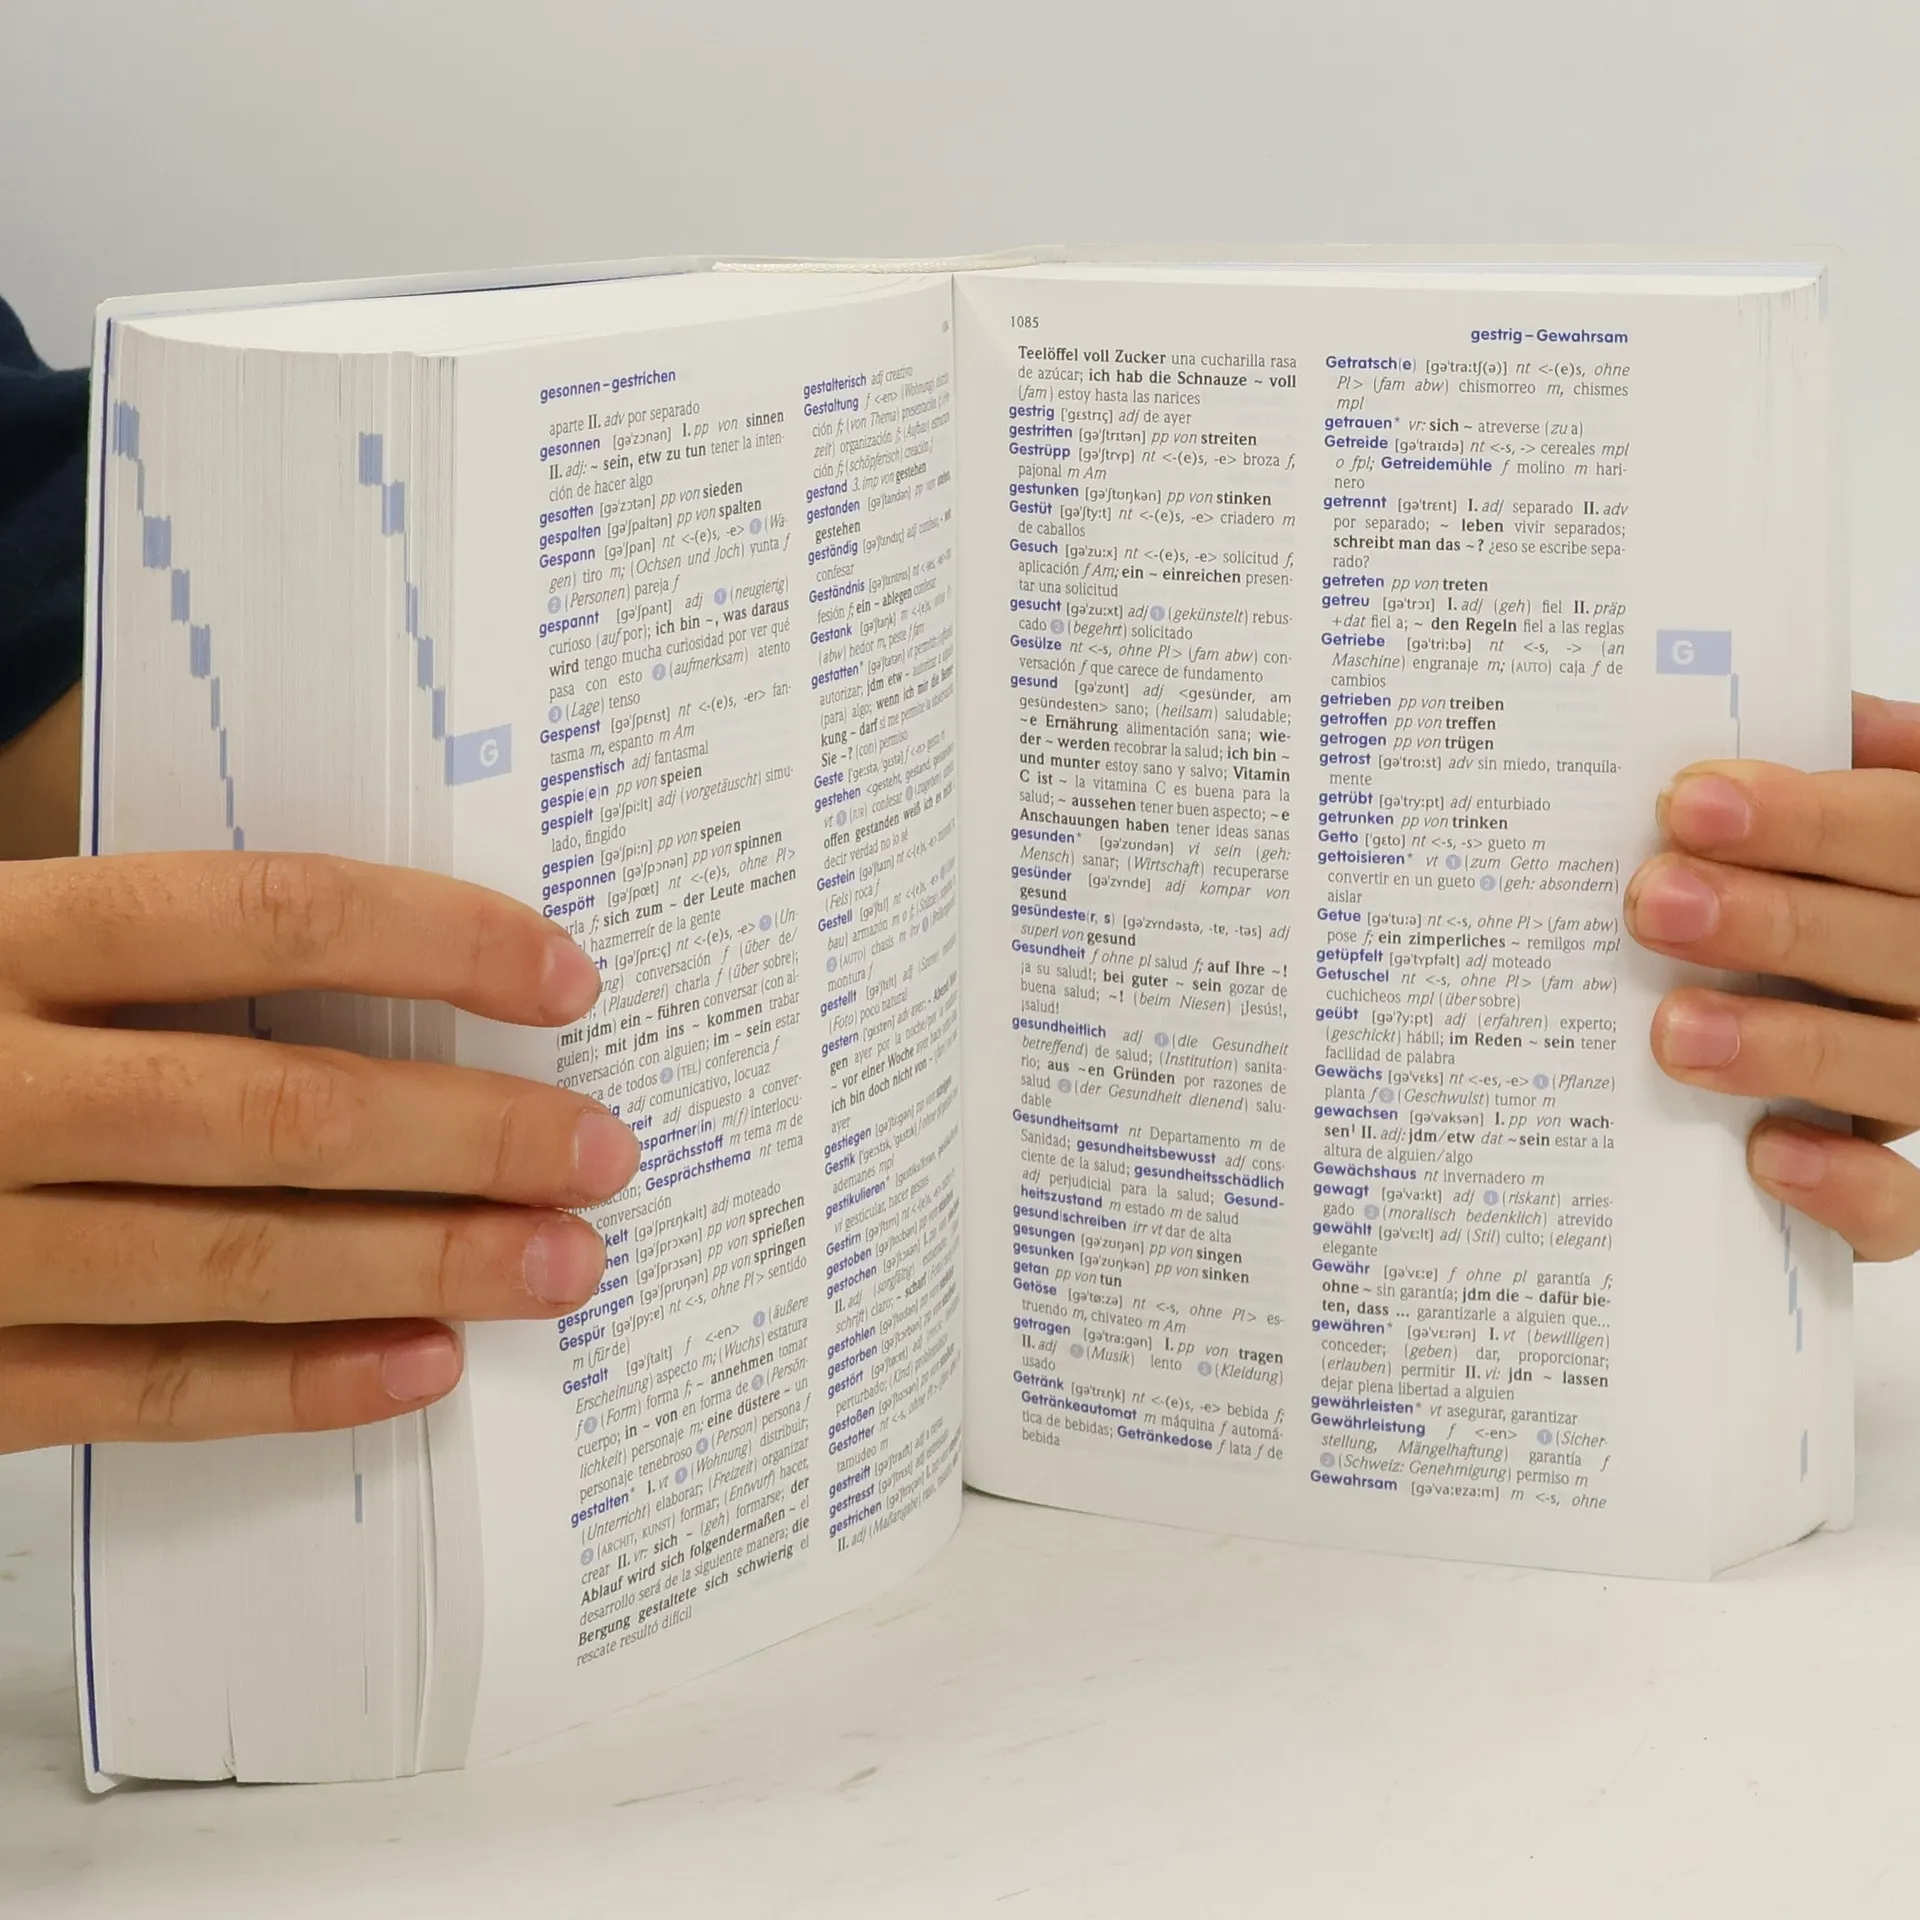 gesonnen – gestrichen
aparte II. adv por separado
gesonnen [gəˈzɔnən] I. pp von sinnen
II. adj: ~ sein, etw zu tun tener la inten-
ción de hacer algo
gesotten [gəˈzɔtən] pp von sieden
gespalten [gəˈʃpaltən] pp von spalten
Gespann [gəˈʃpan] nt <-(e)s, -e> 1 (Wa-
gen) tiro m; (Ochsen und Joch) yunta f
2 (Personen) pareja f
gespannt [gəˈʃpant] adj 1 (neugierig)
curioso (auf por); ich bin ~, was daraus
wird tengo mucha curiosidad por ver qué
pasa con esto 2 (aufmerksam) atento
3 (Lage) tenso
Gespenst [gəˈʃpɛnst] nt <-(e)s, -er> fan-
tasma m, espanto m Am
gespenstisch adj fantasmal
gespie(e)n pp von speien
gespielt [gəˈʃpiːlt] adj (vorgetäuscht) simu-
lado, fingido
gespien [gəˈʃpiːn] pp von speien
gesponnen [gəˈʃpɔnən] pp von spinnen
Gespött [gəˈʃpœt] nt <-(e)s, ohne Pl>
f; sich zum ~ der Leute machen
hazmerreír de la gente
[gəˈʃprɛːç] nt <-(e)s, -e> 1 (Un-
conversación f (über de/
(Plauderei) charla f (über sobre);
(mit jdm) ein ~ führen conversar (con al-
guien); mit jdm ins ~ kommen trabar
conversación con alguien; im ~ sein estar
de todos 2 (TEL) conferencia f
adj comunicativo, locuaz
adj dispuesto a conver-
m(f) interlocu-
m tema m de
Gesprächsthema nt tema
conversación
[gəˈʃprɛŋkəlt] adj moteado
[gəˈʃprɔxən] pp von sprechen
[gəˈʃprɔsən] pp von sprießen
gesprungen [gəˈʃprʊŋən] pp von springen
Gespür [gəˈʃpyːɐ] nt <-s, ohne Pl> sentido
m (für de)
Gestalt [gəˈʃtalt] f <-en> 1 (äußere
Erscheinung) aspecto m; (Wuchs) estatura
f 2 (Form) forma f; ~ annehmen tomar
cuerpo; in ~ von en forma de 3 (Persön-
lichkeit) personaje m; eine düstere ~ un
personaje tenebroso 4 (Person) persona f
gestalten* I. vt 1 (Wohnung) distribuir;
(Unterricht) elaborar; (Freizeit) organizar
2 (ARCHIT, KUNST) formar; (Entwurf) hacer,
crear II. vr: sich ~ (geh) formarse; der
Ablauf wird sich folgendermaßen ~ el
desarrollo será de la siguiente manera; die
Bergung gestaltete sich schwierig el
rescate resultó difícil
gestalterisch adj creativo
Gestaltung f <-en> (Wohnung)
ción f; (von Thema) presentación f
organización f; (Aufbau)
ción f; (schöpferisch) creación f
gestand 3. imp von gestehen
gestanden [gəˈʃtandən] pp von
gestehen
geständig [gəˈʃtɛndɪç] adj
confesar
Geständnis [gəˈʃtɛntnɪs] nt
fesión f; ein ~ ablegen confesar
Gestank [gəˈʃtaŋk] m
(abw) hedor m, peste f fam
gestatten* [gəˈʃtatən] vt permitir
autorizar; jdm etw ~ autorizar a
(para) algo; wenn ich mir die Bemer
kung ~ darf si me permite la
Sie ~? (con) permiso
Geste [ˈgeːstə, ˈgɛstə] f <-n> gesto m
gestehen
vt 1 (JUR) confesar 2
offen gestanden weiß ich es
decir verdad no lo sé
Gestein [gəˈʃtaɪn] nt <-(e)s, -e>
(Fels) roca f
Gestell [gəˈʃtɛl] nt <-(e)s, -e>
bau) armazón m o f
2 (AUTO) chasis m inv
montura f
gestellt [gəˈʃtɛlt] adj
(Foto) poco natural
gestern [ˈgɛstɐn] adv ayer; ~
gen ayer por la noche/por la
~ vor einer Woche ayer hace
ich bin doch nicht von ~
ayer
gestiegen
Gestik
ademanes mpl
gestikulieren*
vi gesticular, hacer gestos
Gestirn
gestoben
gestochen
II. adj (sorgfältig)
schrift) claro; ~ scharf
gestohlen
gestorben
gestört
perturbado; (Kind)
gestoßen
Gestotter nt <-s, ohne Pl>
tamudeo m
gestreift
gestresst
gestrichen
II. adj (Maßangabe)
1085
gestrig – Gewahrsam
Teelöffel voll Zucker una cucharilla rasa
de azúcar; ich hab die Schnauze ~ voll
(fam) estoy hasta las narices
gestrig [ˈgɛstrɪç] adj de ayer
gestritten [gəˈʃtrɪtən] pp von streiten
Gestrüpp [gəˈʃtrʏp] nt <-(e)s, -e> broza f,
pajonal m Am
gestunken [gəˈʃtʊŋkən] pp von stinken
Gestüt [gəˈʃtyːt] nt <-(e)s, -e> criadero m
de caballos
Gesuch [gəˈzuːx] nt <-(e)s, -e> solicitud f,
aplicación f Am; ein ~ einreichen presen-
tar una solicitud
gesucht [gəˈzuːxt] adj 1 (gekünstelt) rebus-
cado 2 (begehrt) solicitado
Gesülze nt <-s, ohne Pl> (fam abw) con-
versación f que carece de fundamento
gesund [gəˈzʊnt] adj <gesünder, am
gesündesten> sano; (heilsam) saludable;
~e Ernährung alimentación sana; wie-
der ~ werden recobrar la salud; ich bin ~
und munter estoy sano y salvo; Vitamin
C ist ~ la vitamina C es buena para la
salud; ~ aussehen tener buen aspecto; ~e
Anschauungen haben tener ideas sanas
gesunden* [gəˈzʊndən] vi sein (geh:
Mensch) sanar; (Wirtschaft) recuperarse
gesünder [gəˈzʏndɐ] adj kompar von
gesund
gesündeste(r, s) [gəˈzʏndəstə, -tɐ, -təs] adj
superl von gesund
Gesundheit f ohne pl salud f; auf Ihre ~!
¡a su salud!; bei guter ~ sein gozar de
buena salud; ~! (beim Niesen) ¡Jesús!,
¡salud!
gesundheitlich adj 1 (die Gesundheit
betreffend) de salud; (Institution) sanita-
rio; aus ~en Gründen por razones de
salud 2 (der Gesundheit dienend) salu-
dable
Gesundheitsamt nt Departamento m de
Sanidad; gesundheitsbewusst adj cons-
ciente de la salud; gesundheitsschädlich
adj perjudicial para la salud; Gesund-
heitszustand m estado m de salud
gesund|schreiben irr vt dar de alta
gesungen [gəˈzʊŋən] pp von singen
gesunken [gəˈzʊŋkən] pp von sinken
getan pp von tun
Getöse [gəˈtøːzə] nt <-s, ohne Pl> es-
truendo m, chivateo m Am
getragen [gəˈtraːgən] I. pp von tragen
II. adj 1 (Musik) lento 2 (Kleidung)
usado
Getränk [gəˈtrɛŋk] nt <-(e)s, -e> bebida f;
Getränkeautomat m máquina f automá-
tica de bebidas; Getränkedose f lata f de
bebida
Getratsch(e) [gəˈtraːtʃ(ə)] nt <-(e)s, ohne
Pl> (fam abw) chismorreo m, chismes
mpl
getrauen* vr: sich ~ atreverse (zu a)
Getreide [gəˈtraɪdə] nt <-s, -> cereales mpl
o fpl; Getreidemühle f molino m hari-
nero
getrennt [gəˈtrɛnt] I. adj separado II. adv
por separado; ~ leben vivir separados;
schreibt man das ~? ¿eso se escribe sepa-
rado?
getreten pp von treten
getreu [gəˈtrɔɪ] I. adj (geh) fiel II. präp
+dat fiel a; ~ den Regeln fiel a las reglas
Getriebe [gəˈtriːbə] nt <-s, -> (an
Maschine) engranaje m; (AUTO) caja f de
cambios
getrieben pp von treiben
getroffen pp von treffen
getrogen pp von trügen
getrost [gəˈtroːst] adv sin miedo, tranquila-
mente
getrübt [gəˈtryːpt] adj enturbiado
getrunken pp von trinken
Getto [ˈgɛto] nt <-s, -s> gueto m
gettoisieren* vt 1 (zum Getto machen)
convertir en un gueto 2 (geh: absondern)
aislar
Getue [gəˈtuːə] nt <-s, ohne Pl> (fam abw)
pose f; ein zimperliches ~ remilgos mpl
getüpfelt [gəˈtʏpfəlt] adj moteado
Getuschel nt <-s, ohne Pl> (fam abw)
cuchicheos mpl (über sobre)
geübt [gəˈʔyːpt] adj (erfahren) experto;
(geschickt) hábil; im Reden ~ sein tener
facilidad de palabra
Gewächs [gəˈvɛks] nt <-es, -e> 1 (Pflanze)
planta f 2 (Geschwulst) tumor m
gewachsen [gəˈvaksən] I. pp von wach-
sen¹ II. adj: jdm/etw dat ~ sein estar a la
altura de alguien/algo
Gewächshaus nt invernadero m
gewagt [gəˈvaːkt] adj 1 (riskant) arries-
gado 2 (moralisch bedenklich) atrevido
gewählt [gəˈvɛːlt] adj (Stil) culto; (elegant)
elegante
Gewähr [gəˈvɛːɐ] f ohne pl garantía f;
ohne ~ sin garantía; jdm die ~ dafür bie-
ten, dass ... garantizarle a alguien que...
gewähren* [gəˈvɛːrən] I. vt (bewilligen)
conceder; (geben) dar, proporcionar;
(erlauben) permitir II. vi: jdn ~ lassen
dejar plena libertad a alguien
gewährleisten* vt asegurar, garantizar
Gewährleistung f <-en> 1 (Sicher-
stellung, Mängelhaftung) garantía f
2 (Schweiz: Genehmigung) permiso m
Gewahrsam [gəˈvaːɐzaːm] m <-s, ohne
G
G